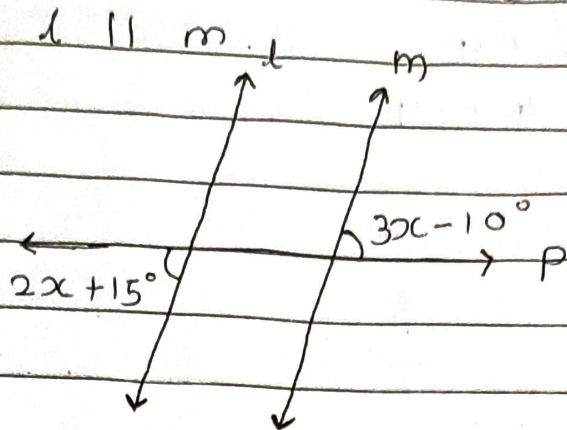 l || m
l m
3x-10°
p
2x+15°